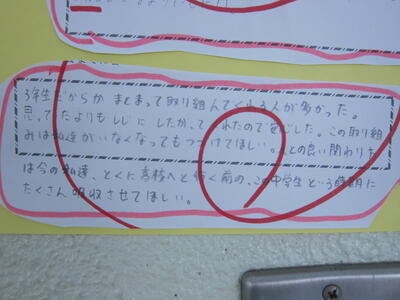 3年生だからか まとまって取り組んでくれる人が多かった。
思ってたよりも しじ にしたがってくれたので を じした。この取り組
みは私達がいなくなってもつづけてほしい。 との良い関わりた
は今の私達、とくに高校へと行く前の、この中学生という時期に
たくさん吸収させてほしい。